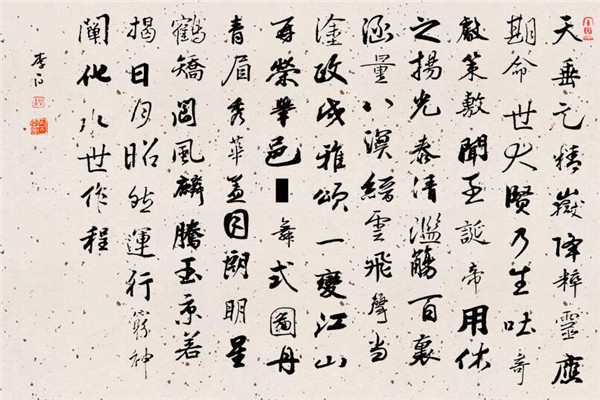 天垂元精嶽降粹靈應
期命世大賢乃生吐奇
獻策敷聞王誕帝用休
之揚光泰清濫觴百裏
涵量八溟縉雲飛聲當
塗政成雅頌一變江山
再榮舉邑■舞式圖丹
青眉秀華蓋目朗明星
鶴矯閬風麟騰玉京若
揭日月昭然運行窮神
闡化永世作程
李白